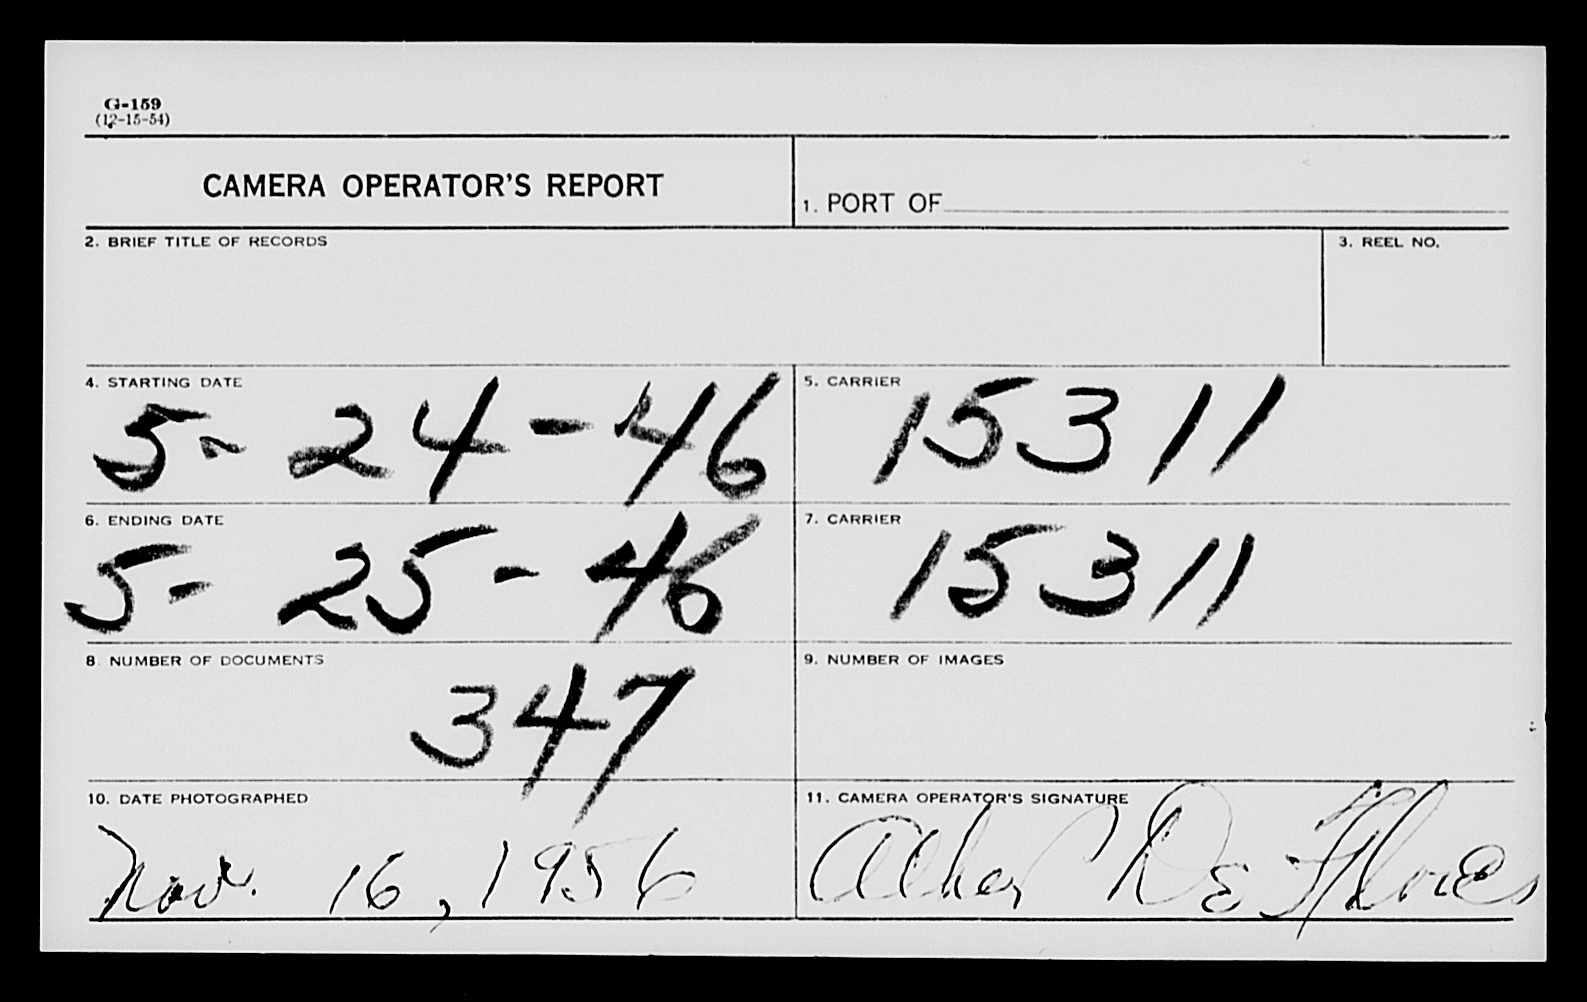 G-159
(12-15-54)
CAMERA OPERATOR'S REPORT
1. PORT OF
2. BRIEF TITLE OF RECORDS
3. REEL NO.
4. STARTING DATE
5-24-46
5. CARRIER
15311
6. ENDING DATE
5-25-46
7. CARRIER
15311
8. NUMBER OF DOCUMENTS
347
9. NUMBER OF IMAGES
10. DATE PHOTOGRAPHED
Nov. 16, 1956
11. CAMERA OPERATOR'S SIGNATURE
De Flores